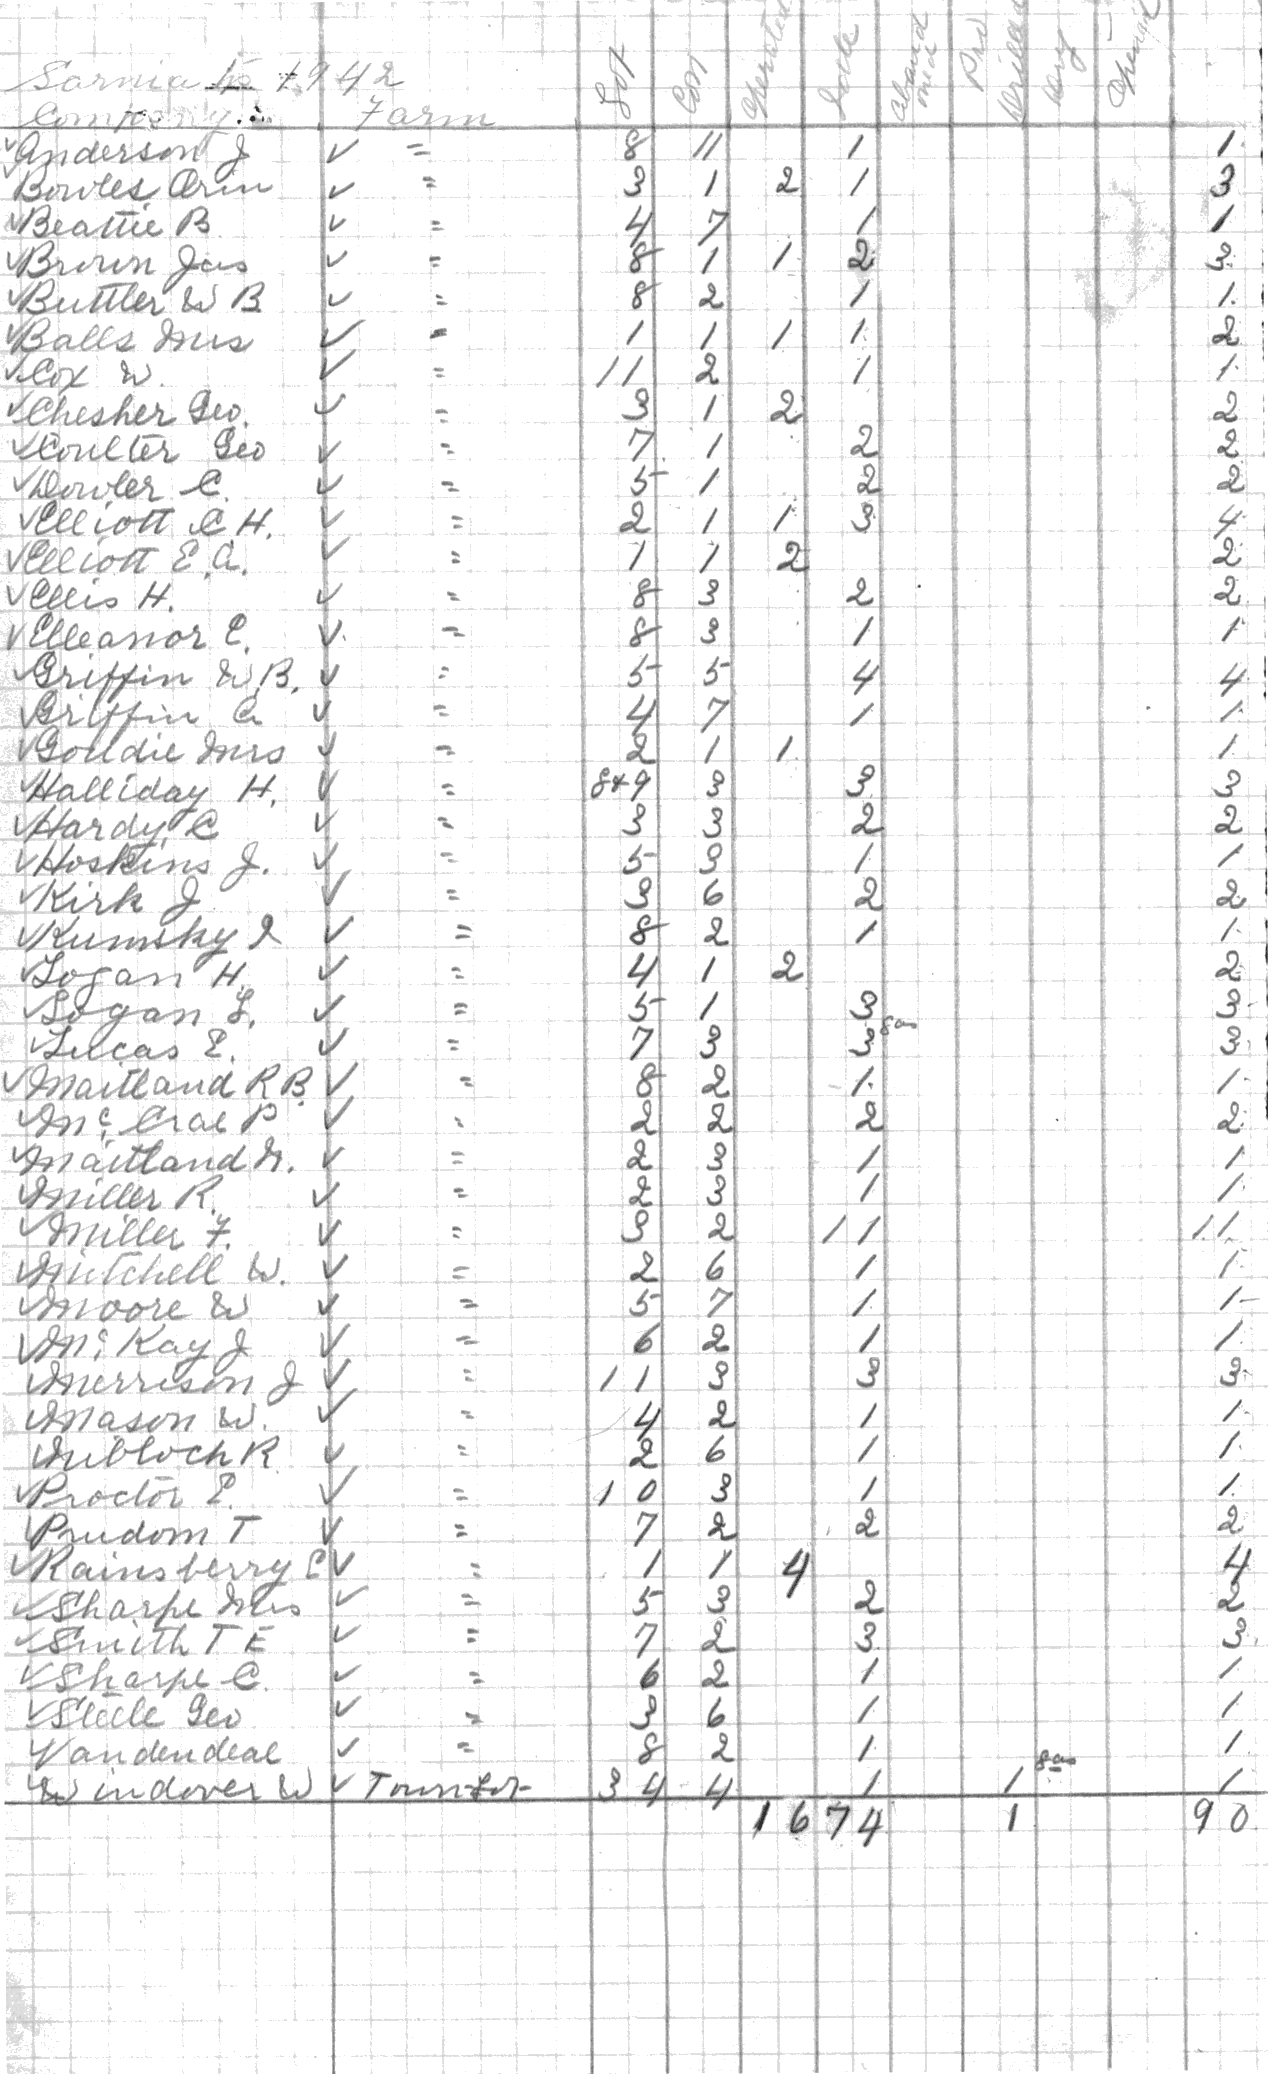 Sarnia 1942
Company Farm Lot Con Operated Idle Abandoned Pro Drilled Dry Opened
Anderson J ✓ = 8 11 1 1
Bowles Orin ✓ = 3 1 2 1 3
Beattie B ✓ = 4 7 1 1
Brown Jas ✓ = 8 1 1 2 3
Buttler W B ✓ = 8 2 1 1
Balls Mrs ✓ = 1 1 1 1 2
Cox W. ✓ = 11 2 1 1
Chesher Geo. ✓ = 3 1 2 2
Coulter Geo ✓ = 7 1 2 2
Dowler C. ✓ = 5 1 2 2
Elliott C. H. ✓ = 2 1 1 3 4
Elliott E. A. ✓ = 1 1 2 2
Ellis H. ✓ = 8 3 2 2
Elleanor E. ✓ = 8 3 1 1
Griffin W. B. ✓ = 5 5 4 4
Griffin A ✓ = 4 7 1 1
Gouldie Mrs ✓ = 2 1 1 1
Halliday H. ✓ = 8+9 3 3 3
Hardy C ✓ = 3 3 2 2
Hoskins J. ✓ = 5 3 1 1
Kirk J ✓ = 3 6 2 2
Kumsky I ✓ = 8 2 1 1
Logan H. ✓ = 4 1 2 2
Logan L. ✓ = 5 1 3 3
Lucas E. ✓ = 7 3 3 gas 3
Maitland R B. ✓ = 8 2 1 1
Mc Crae P ✓ = 2 2 2 2
Maitland ✓ = 2 3 1 1
Miller R. ✓ = 2 3 1 1
Miller F. ✓ = 3 2 11 11
Mitchell W. ✓ = 2 6 1 1
Moore W ✓ = 5 7 1 1
Mc Kay J ✓ = 6 2 1 1
Merrison J ✓ = 11 3 3 3
Mason W. ✓ = 4 2 1 1
R ✓ = 2 6 1 1
Proctor E. ✓ = 10 3 1 1
Prudom T ✓ = 7 2 2 2
Rainsberry C ✓ = 1 1 4 4
Sharpe Mrs ✓ = 5 3 2 2
Smith T E ✓ = 7 2 3 3
Sharpe C. ✓ = 6 2 1 1
Steele Geo ✓ = 3 6 1 1
Vandendeal ✓ = 8 2 1 1
Windover W ✓ Town Lot 34 4 1 1 gas 1
16 74 1 90